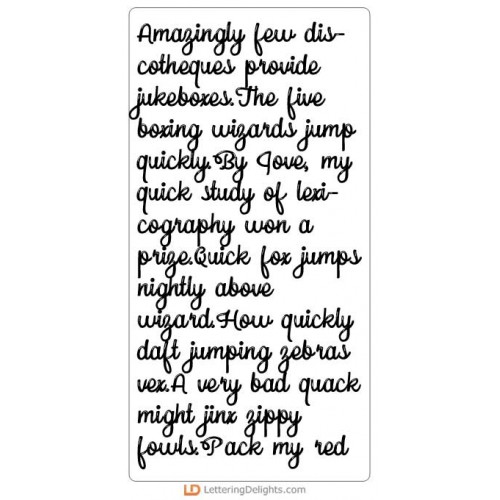 Amazingly few dis-
cotheques provide
jukeboxes.The five
boxing wizards jump
quickly.By Jove, my
quick study of lexi-
cography won a
prize.Quick fox jumps
nightly above
wizard.How quickly
daft jumping zebras
vex.A very bad quack
might jinx zippy
fowls.Pack my red
LD LetteringDelights.com